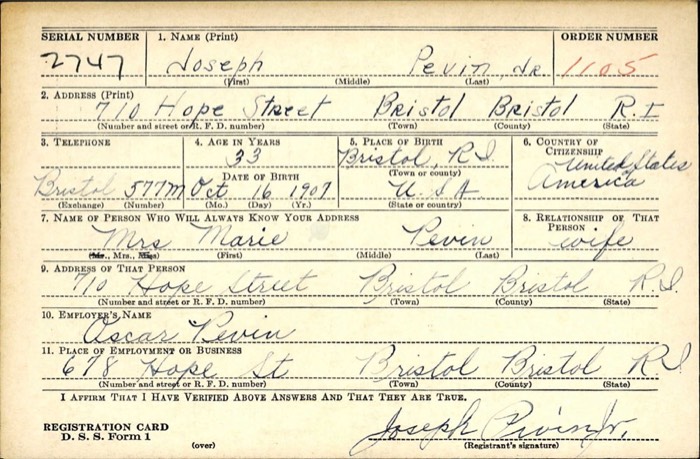 SERIAL NUMBER 1. NAME (Print) ORDER NUMBER
2747 Joseph Pevin, Jr. 1105
(First) (Middle) (Last)
2. ADDRESS (Print)
710 Hope Street Bristol Bristol R.I
(Number and street or R. F. D. number) (Town) (County) (State)
3. TELEPHONE 4. AGE IN YEARS 5. PLACE OF BIRTH 6. COUNTRY OF CITIZENSHIP
33 Bristol, R.I. United States
DATE OF BIRTH (Town or county) of America
Bristol 577M Oct 16 1907 U.S.A.
(Exchange) (Number) (Mo.) (Day) (Yr.) (State or country)
7. NAME OF PERSON WHO WILL ALWAYS KNOW YOUR ADDRESS 8. RELATIONSHIP OF THAT PERSON
Mrs Marie Pevin wife
(Mr., Mrs., Miss) (First) (Middle) (Last)
9. ADDRESS OF THAT PERSON
710 Hope Street Bristol Bristol R.I.
(Number and street or R. F. D. number) (Town) (County) (State)
10. EMPLOYER'S NAME
Oscar Pevin
11. PLACE OF EMPLOYMENT OR BUSINESS
678 Hope St Bristol Bristol R.I
(Number and street or R. F. D. number) (Town) (County) (State)
I AFFIRM THAT I HAVE VERIFIED ABOVE ANSWERS AND THAT THEY ARE TRUE.
REGISTRATION CARD
D. S. S. Form 1 Joseph Pivin Jr.
(over) (Registrant's signature)